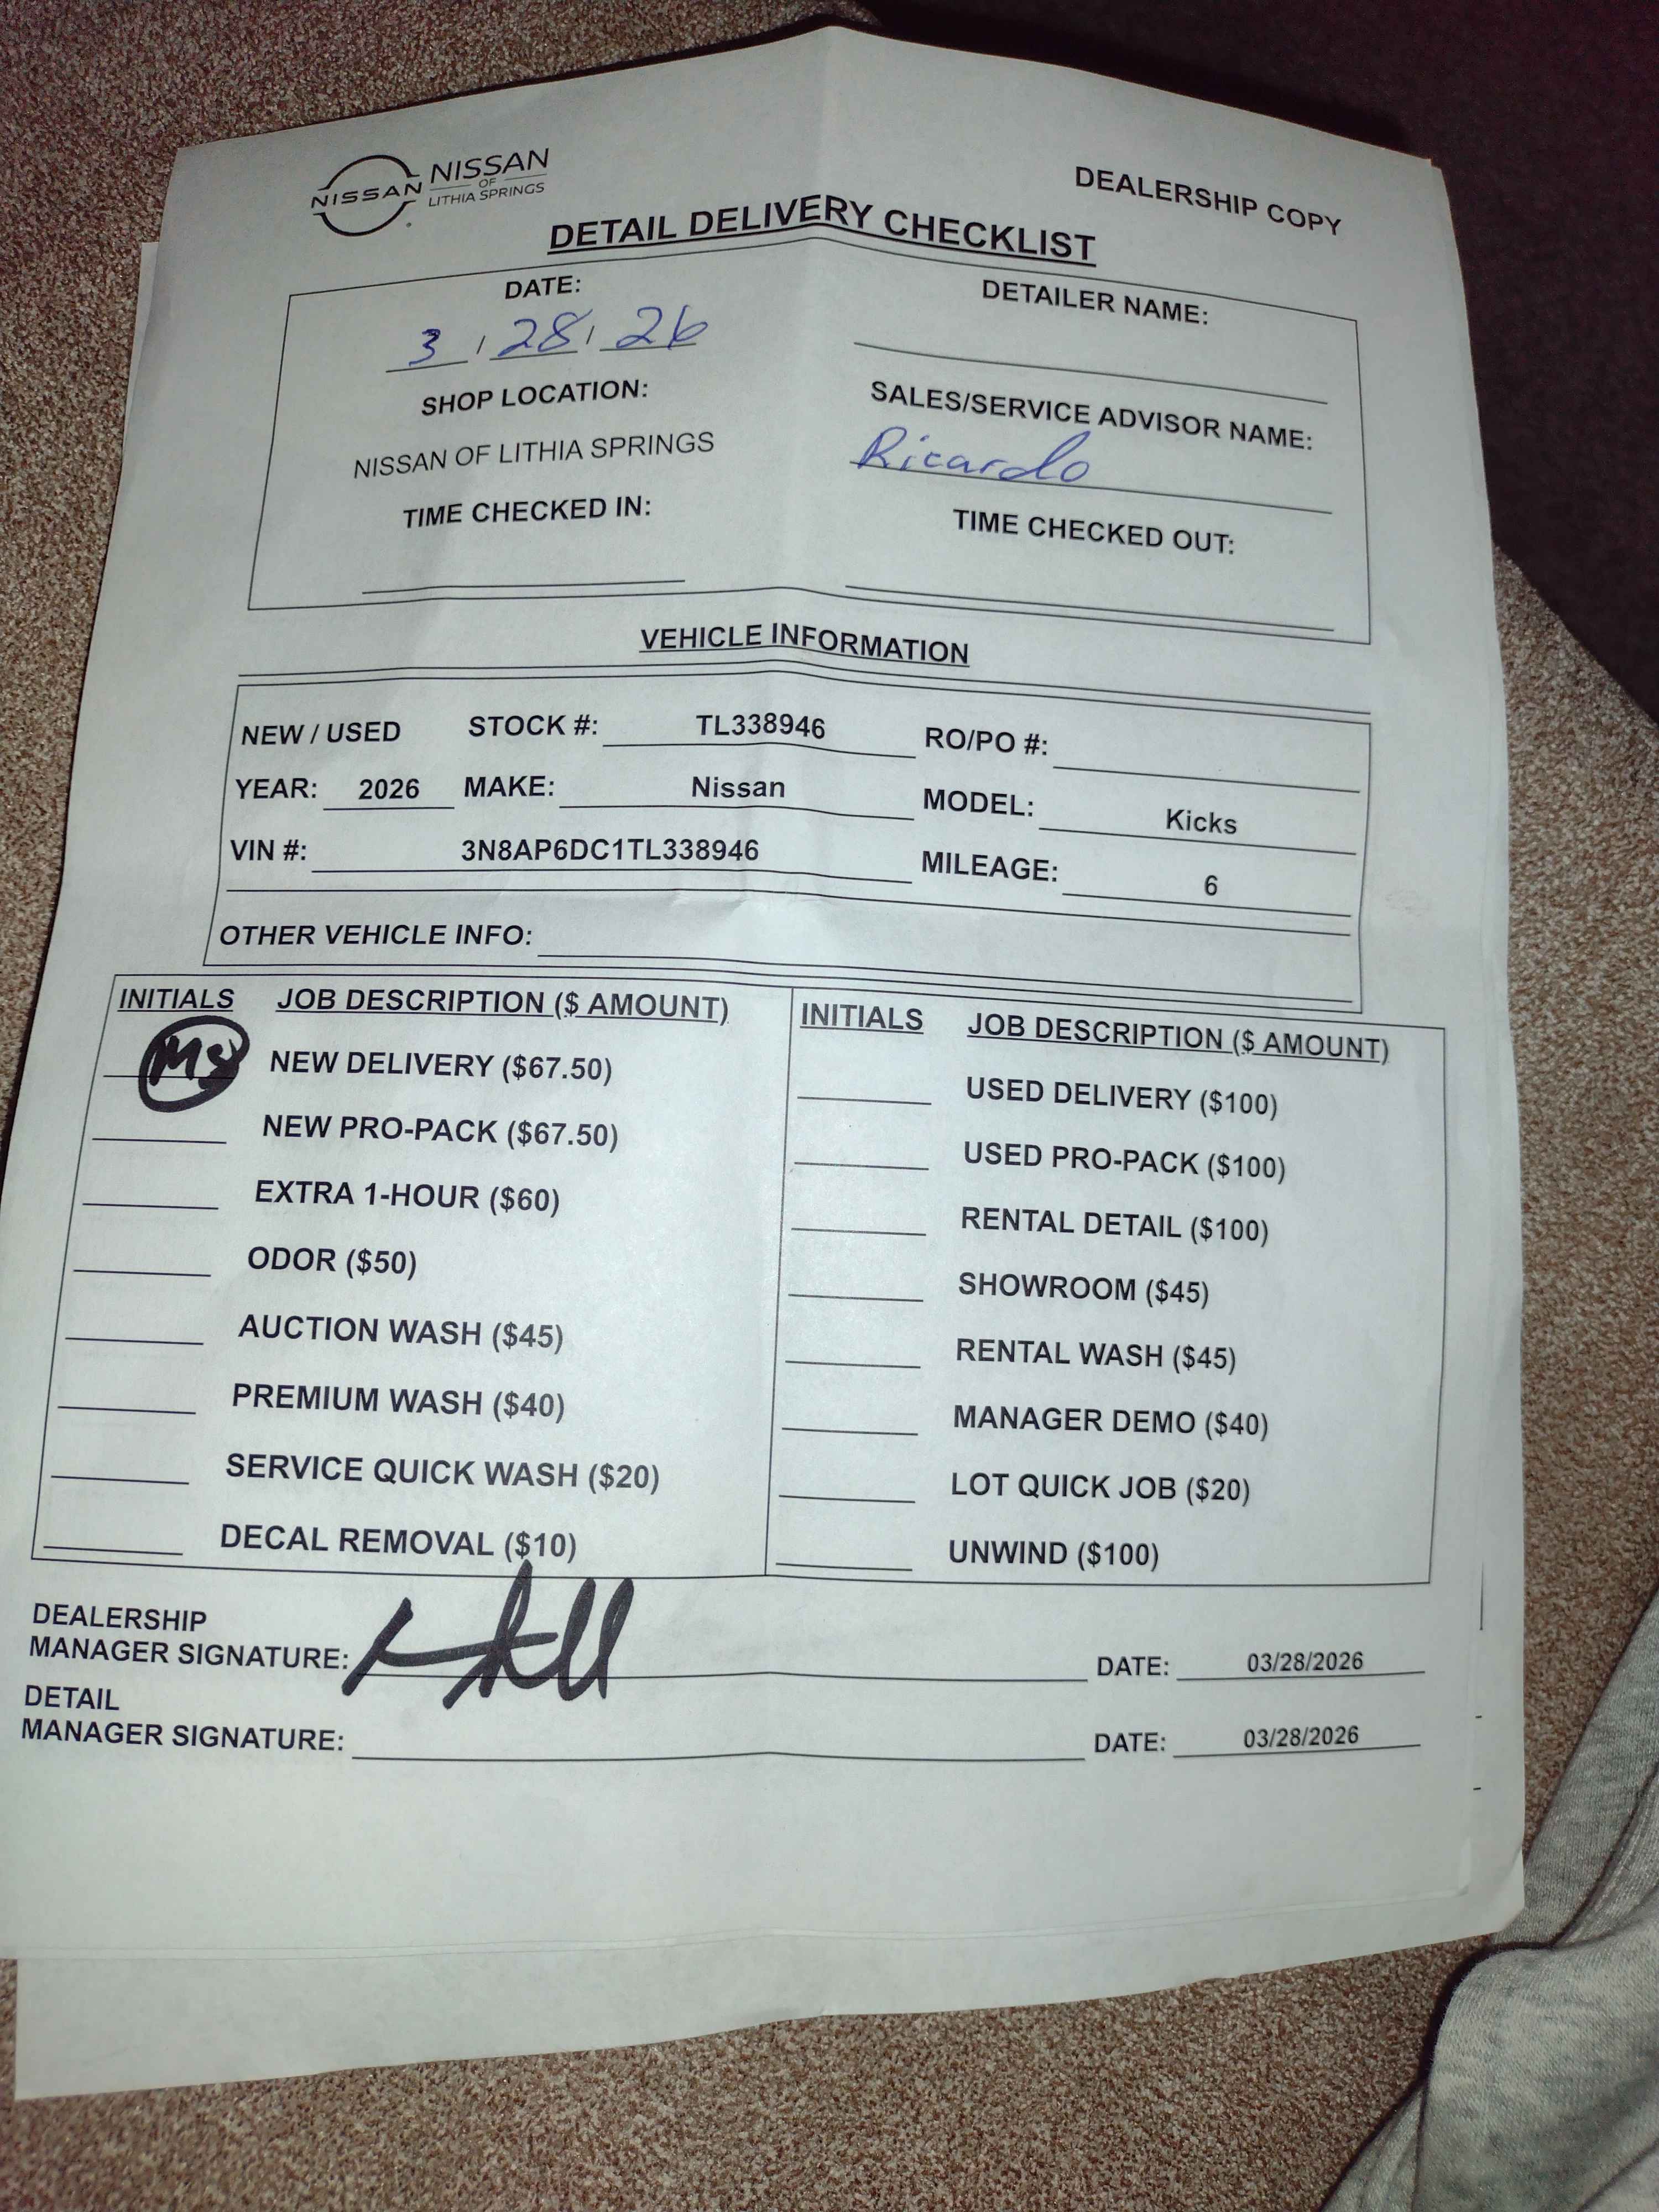 NISSAN NISSAN OF LITHIA SPRINGS
DEALERSHIP COPY
DETAIL DELIVERY CHECKLIST
DATE:
3 / 28 / 26
DETAILER NAME:
SHOP LOCATION:
NISSAN OF LITHIA SPRINGS
SALES/SERVICE ADVISOR NAME:
Ricardo
TIME CHECKED IN:
TIME CHECKED OUT:
VEHICLE INFORMATION
NEW / USED STOCK #: TL338946 RO/PO #:
YEAR: 2026 MAKE: Nissan MODEL: Kicks
VIN #: 3N8AP6DC1TL338946 MILEAGE: 6
OTHER VEHICLE INFO:
INITIALS JOB DESCRIPTION ($ AMOUNT)
NEW DELIVERY ($67.50)
NEW PRO-PACK ($67.50)
EXTRA 1-HOUR ($60)
ODOR ($50)
AUCTION WASH ($45)
PREMIUM WASH ($40)
SERVICE QUICK WASH ($20)
DECAL REMOVAL ($10)
INITIALS JOB DESCRIPTION ($ AMOUNT)
USED DELIVERY ($100)
USED PRO-PACK ($100)
RENTAL DETAIL ($100)
SHOWROOM ($45)
RENTAL WASH ($45)
MANAGER DEMO ($40)
LOT QUICK JOB ($20)
UNWIND ($100)
DEALERSHIP
MANAGER SIGNATURE: DATE: 03/28/2026
DETAIL
MANAGER SIGNATURE: DATE: 03/28/2026